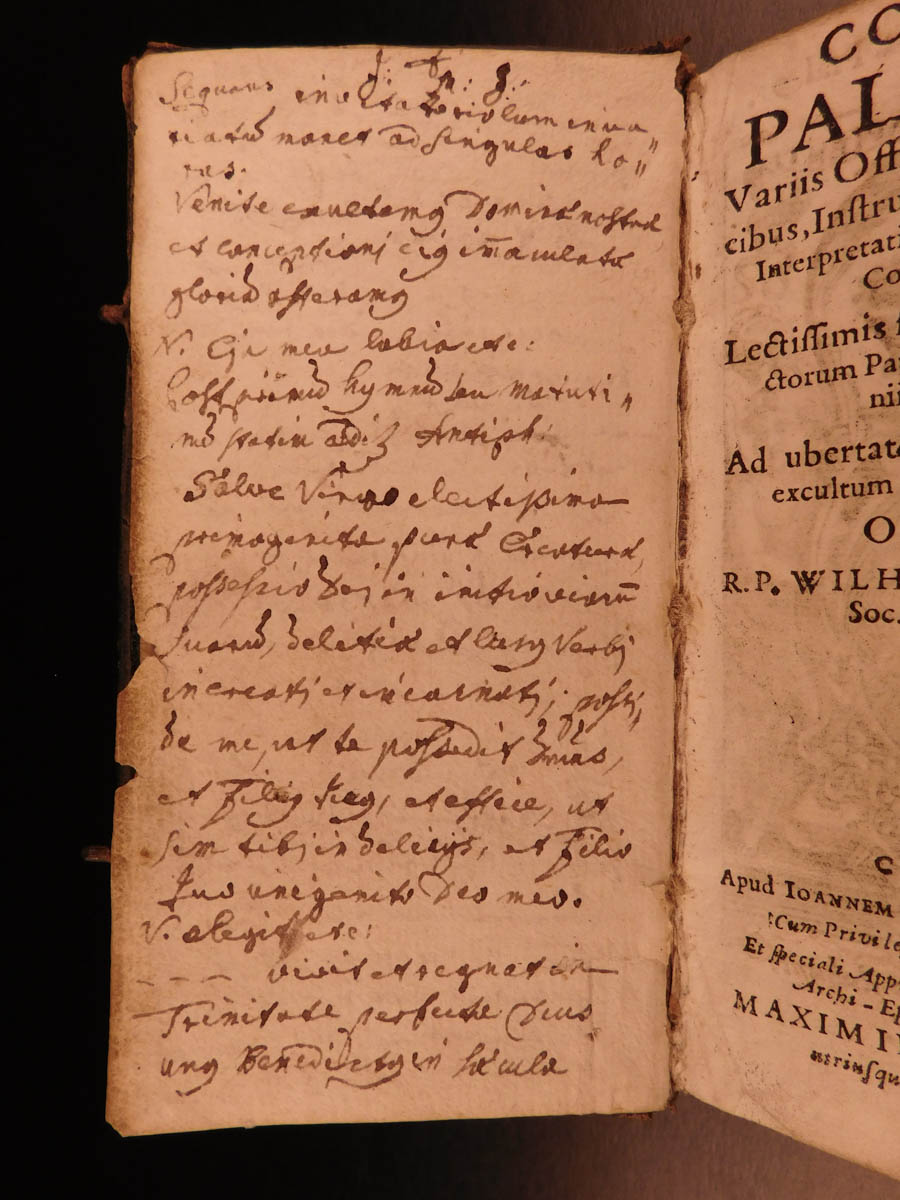 J: M: J:
Sequens invitatoriolum inva
riatū manet ad singulas ho〃
ras.
Venite exultemꝯ Dominæ nostræ
et conceptionj eiꝯ im̄aculatæ
gloriā offeramꝯ
V. Eja mea labia etc:
Post primū hymnū seu Matuti〃
nū statim Antiph:
Salve Virgo electissima
primogenita puræ Creaturæ,
possessio Dej in initio viarū
suarū, delitiæ et Verbj
increatj et incarnatj; possi〃
de me, ut te possedit Dn̄us,
et Filiꝯ tuꝯ, et effice, ut
sim tibj in delicijs, et Filio
Tuo unigenito Deo meo.
V. elegit etc:
_ _ _ vivit et regnat in
Trinitate perfecte Deus
unꝯ Benedictꝯ in sæcula
CO
PAL
Variis Off
cibus, Inſtru
Interpretati
Co
Lectiſſimis ſ
ctorum Pa
nii
Ad ubertate
excultum
O
R.P. WILH
Soc.
C
Apud IOANNEM
Cum Privile
Et ſpeciali App
Archi-Ep
MAXIMI
utriuſqu